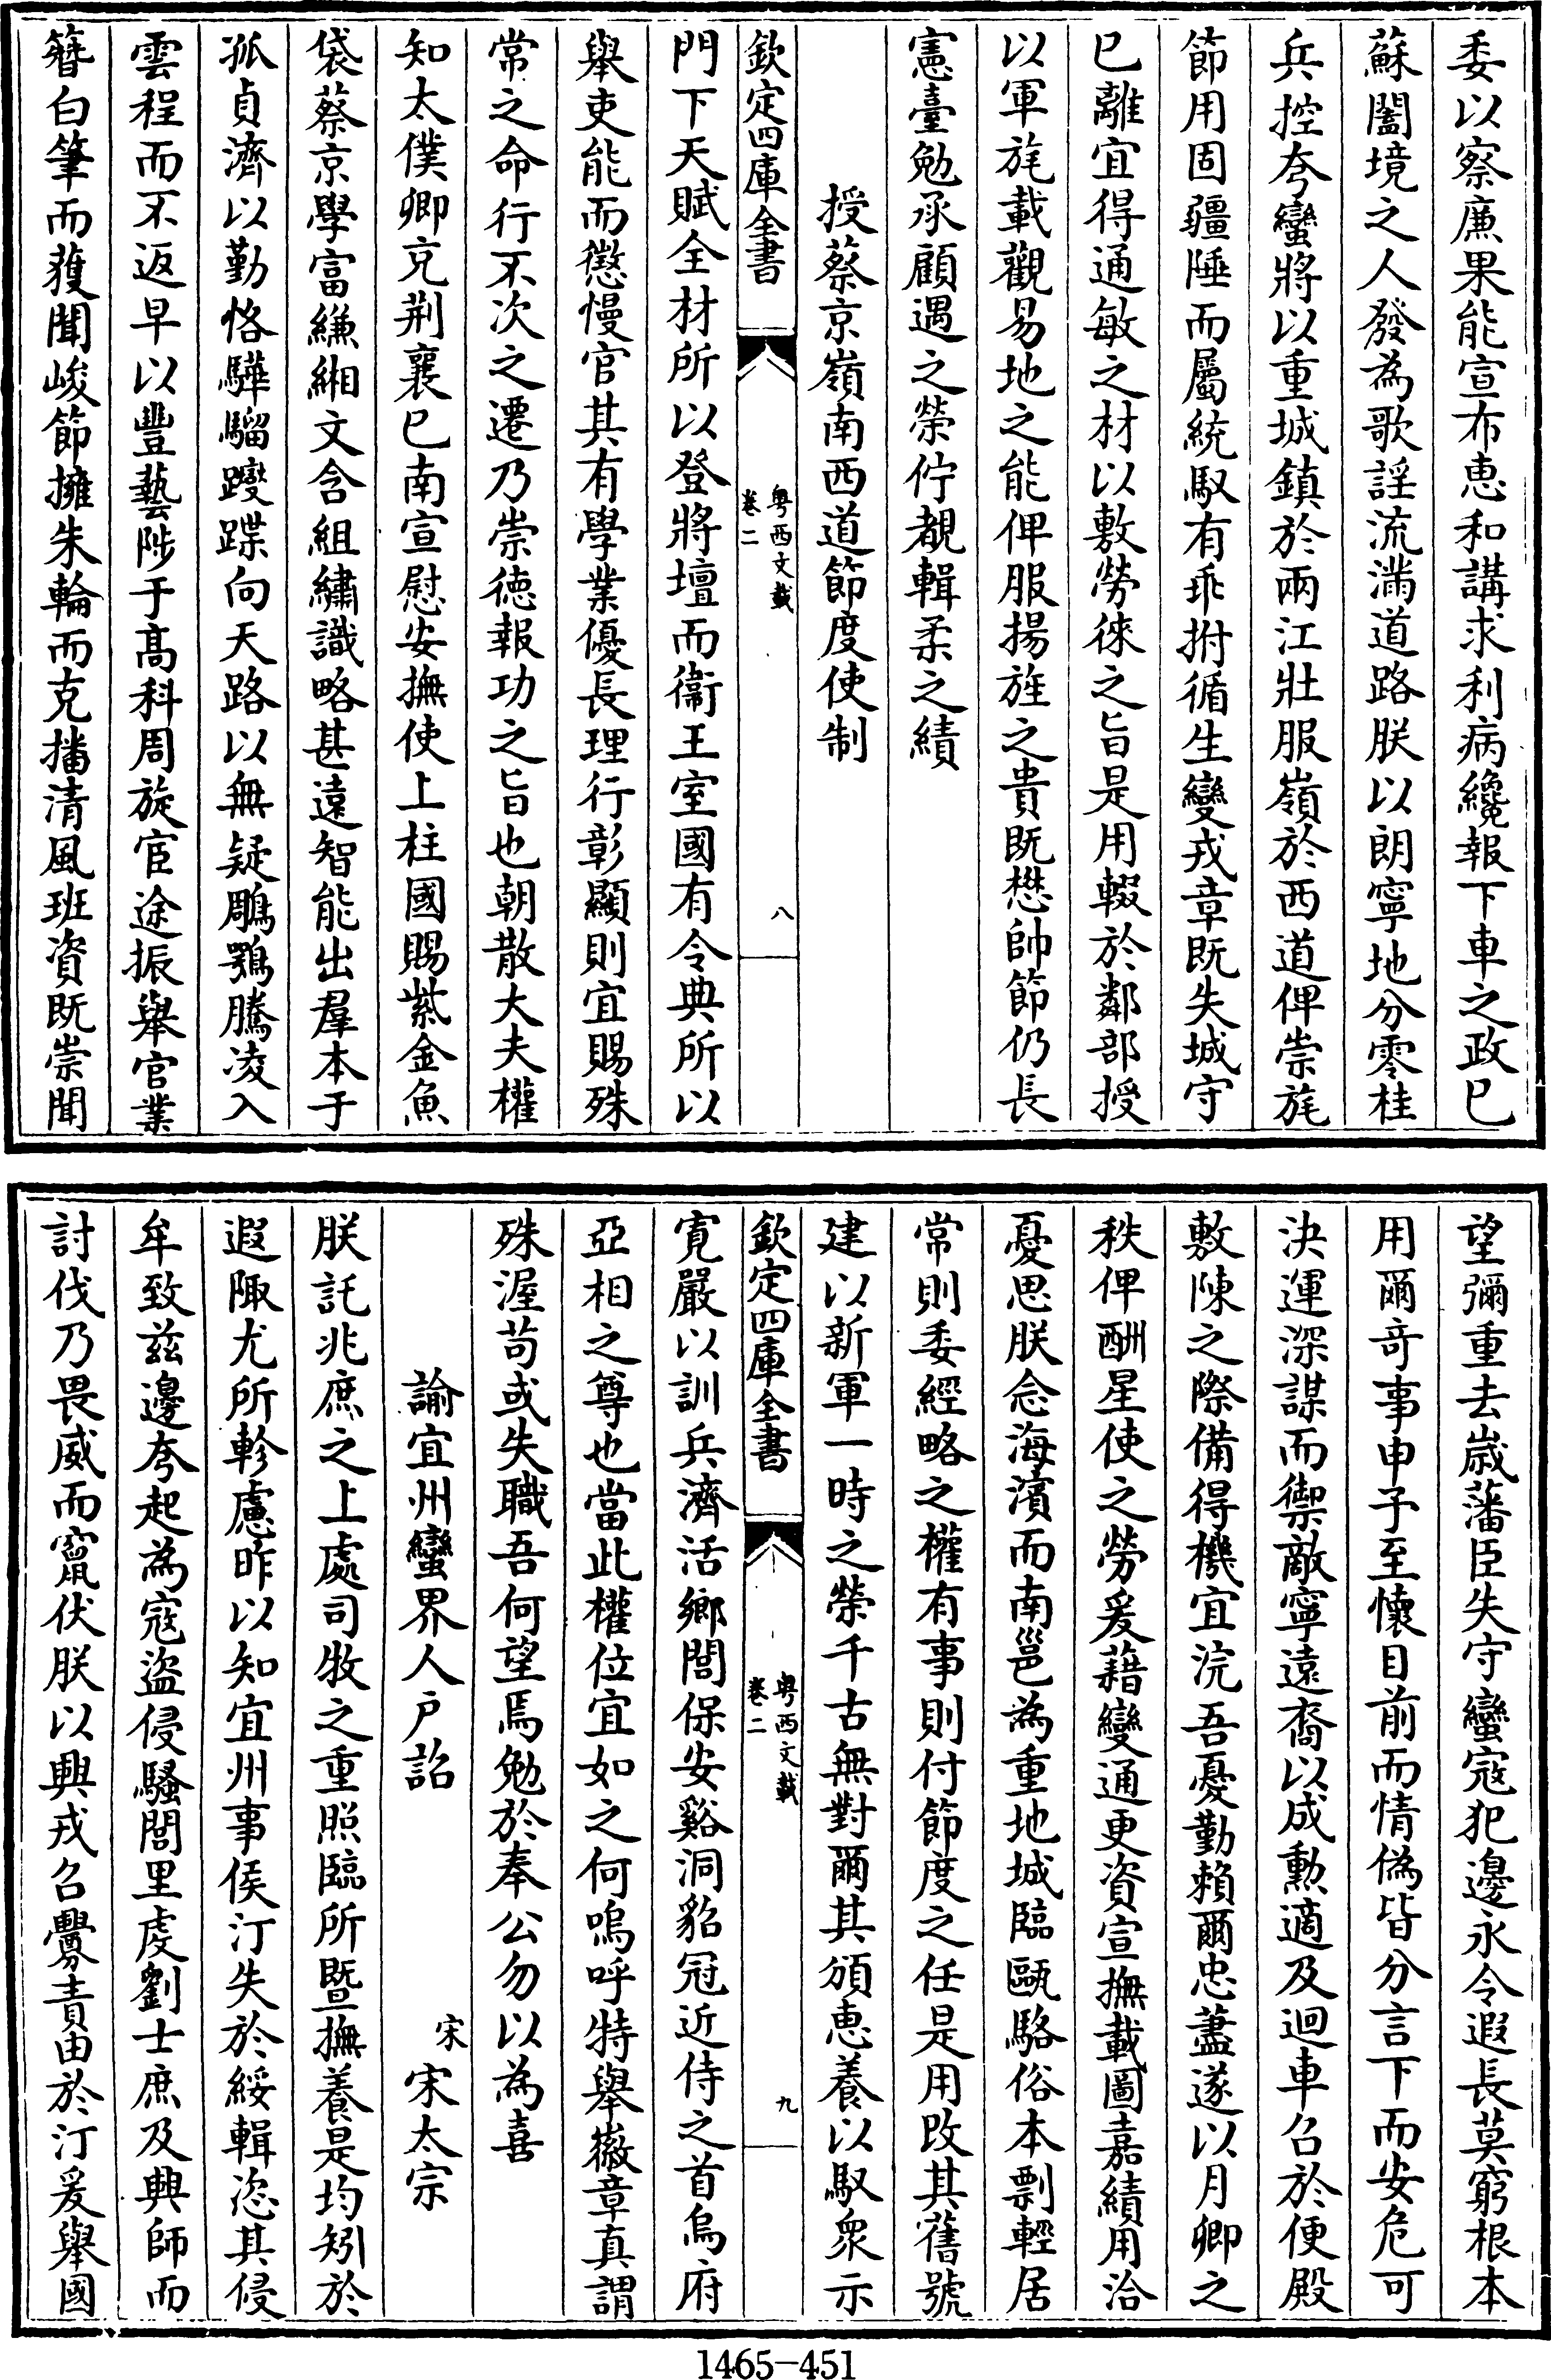 委以察廉果能宣布恵和講求利病纔報下車之政已
蘇闔境之人發為歌謡流滿道路朕以朗寧地分零桂
兵控夸蠻將以重城鎮於兩江壯服嶺於西道俾崇旄
節用固疆陲而屬統馭有乖拊循生變戎章既失城守
已離宜得通敏之材以敷勞徠之旨是用輟於鄰部授
以軍旄載觀易地之能俾服揚旌之貴既懋帥節仍長
憲臺勉承顧遇之榮佇覩輯柔之績
授蔡京嶺南西道節度使制
欽定四庫全書
粤西文載
卷二
八
門下天賦全材所以登將壇而衞王室國有令典所以
舉吏能而懲慢官其有學業優長理行彰顯則宜賜殊
常之命行不次之遷乃崇徳報功之旨也朝散大夫權
知太僕卿充荆襄已南宣慰安撫使上柱國賜紫金魚
袋蔡京學富縑緗文含組繡識略甚遠智能出羣本于
孤貞濟以勤恪驊騮躞蹀向天路以無疑鵰鶚騰凌入
雲程而不返早以豐藝陟于髙科周旋宦途振舉官業
簪白筆而蔑聞峻節擁朱輪而克播清風班資既崇聞
望彌重去嵗藩臣失守蠻寇犯邊永令遐長莫窮根本
用爾竒事申予至懷目前而情偽皆分言下而安危可
決運深謀而禦敵寧遠裔以成勲適及迴車召於便殿
敷陳之際備得機宜浣吾憂勤賴爾忠藎遂以月卿之
秩俾酬星使之勞爰藉變通更資宣撫載圖嘉績用洽
憂思朕念海濱而南邕為重地城臨甌駱俗本剽輕居
常則委經略之權有事則付節度之任是用改其舊號
建以新軍一時之榮千古無對爾其頒恵養以馭衆示
欽定四庫全書
粤西文載
卷二
九
寛嚴以訓兵濟活鄉閭保安谿洞貂冠近侍之首烏府
亞相之尊也當此權位宜如之何嗚呼特舉徽章真謂
殊渥茍或失職吾何望焉勉於奉公勿以為喜
諭宜州蠻界人户詔
宋 宋太宗
朕託兆庶之上處司牧之重照臨所暨撫養是均矧於
遐陬尤所軫慮昨以知宜州事侯汀失於綏輯恣其侵
牟致兹邊夸起為寇盜侵騷閭里虔劉士庶及興師而
討伐乃畏威而竄伏朕以興戎召釁責由於汀爰舉國
1465-451